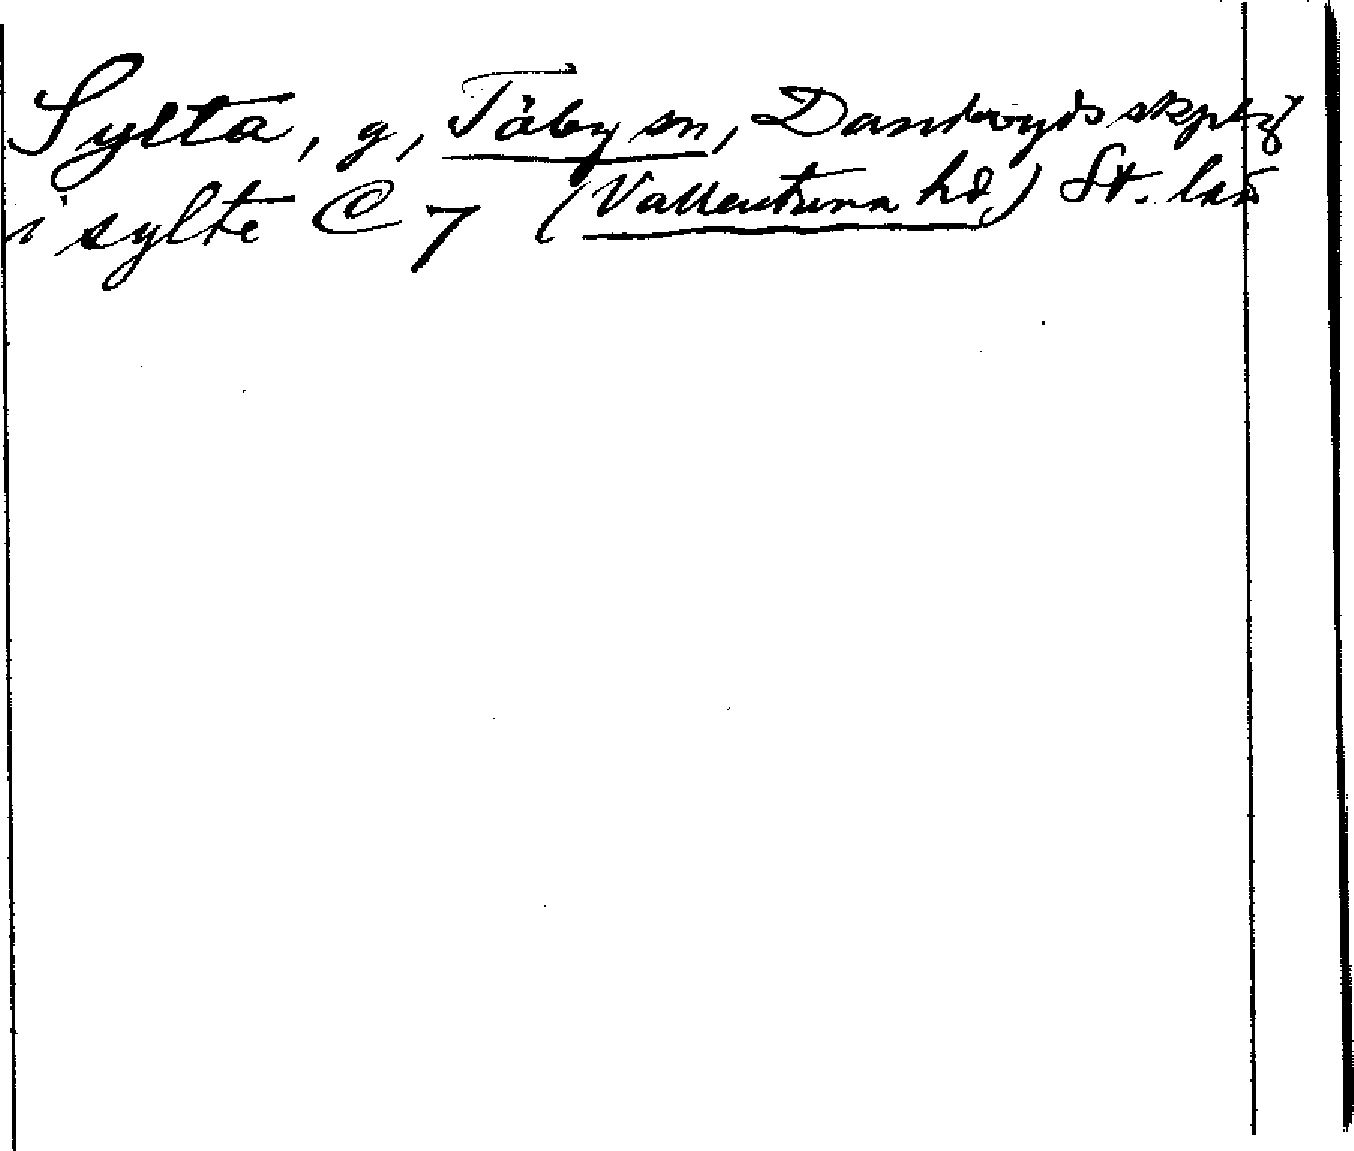 Sylta, g, Täby sn, Danderyds skplg
i sylte C 7 (Vallentuna hd) St. län